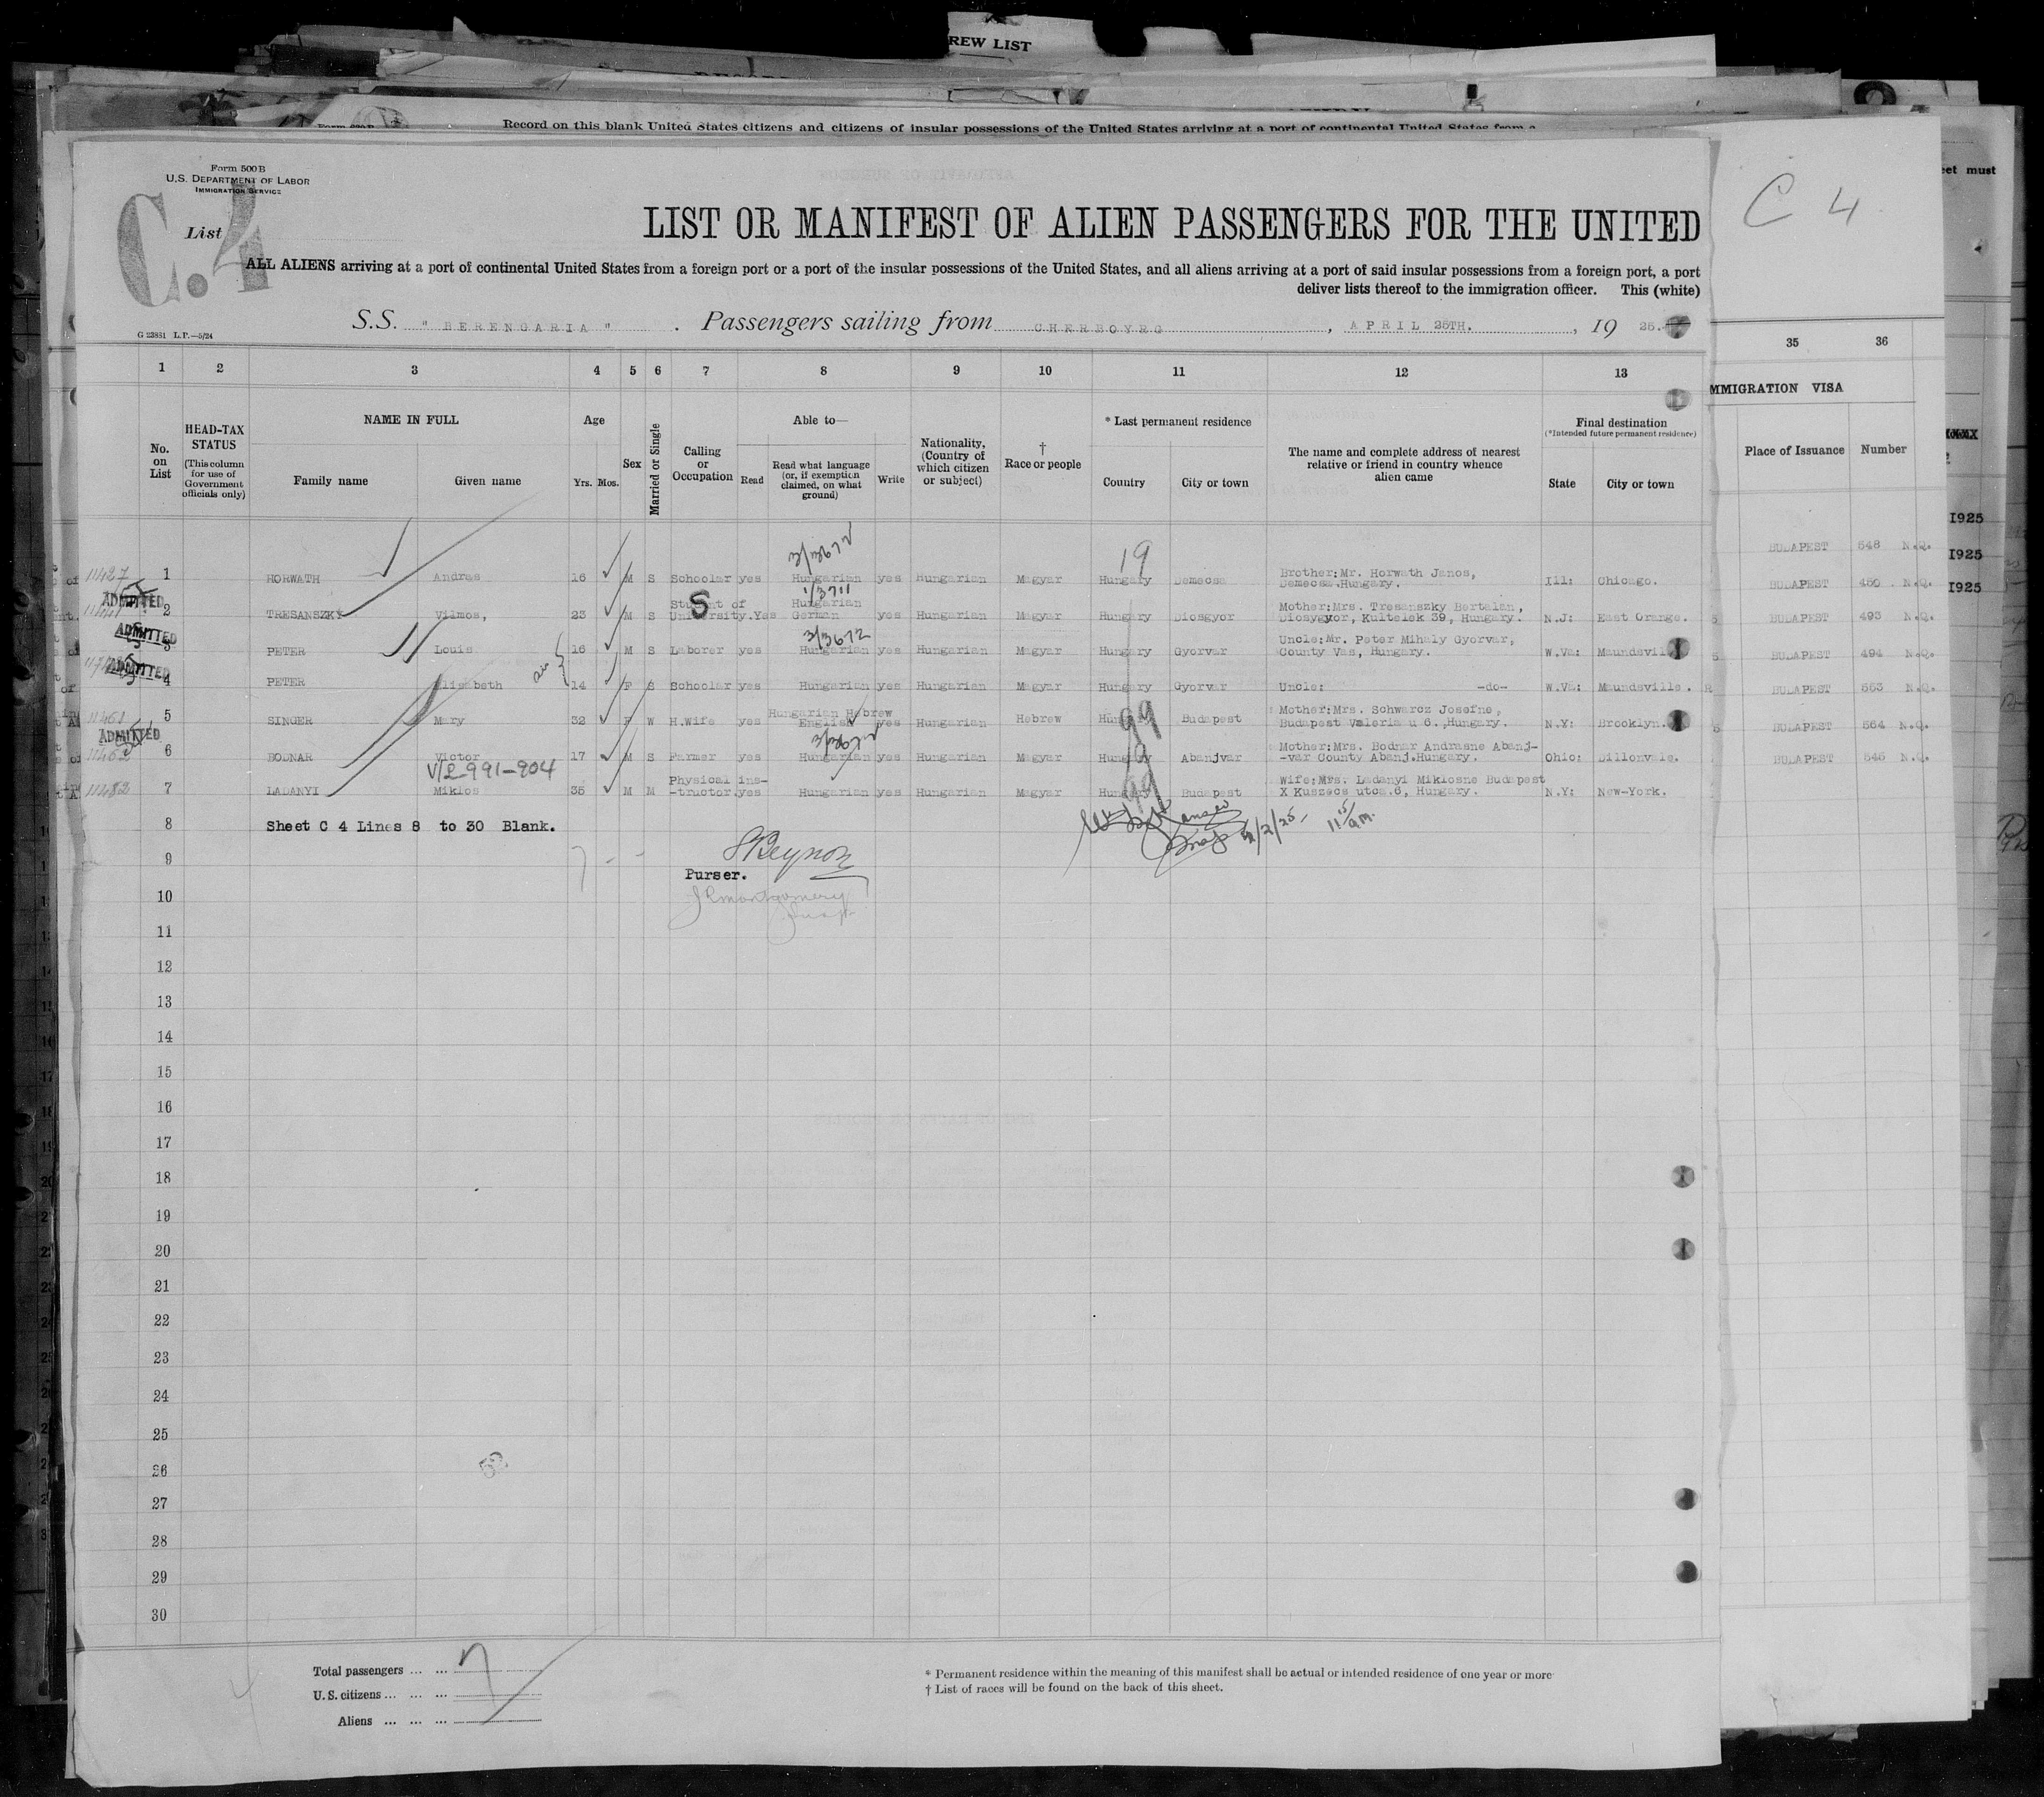 REW LIST
Record on this blank United States citizens and citizens of insular possessions of the United States arriving at a port of continental United States from a
eet must
Form 500 B
U.S. DEPARTMENT OF LABOR
IMMIGRATION SERVICE
C.4
C 4
List
LIST OR MANIFEST OF ALIEN PASSENGERS FOR THE UNITED
ALL ALIENS arriving at a port of continental United States from a foreign port or a port of the insular possessions of the United States, and all aliens arriving at a port of said insular possessions from a foreign port, a port
deliver lists thereof to the immigration officer. This (white)
S.S. "BERENGARIA". Passengers sailing from CHERBOYRG, APRIL 25TH., 19 25.
G 23881 L.P.—5/24
1 2 3 4 5 6 7 8 9 10 11 12 13 35 36
MMIGRATION VISA
No. on List
HEAD-TAX STATUS
(This column for use of Government officials only)
NAME IN FULL
Family name Given name
Age
Yrs. Mos.
Sex
Married or Single
Calling or Occupation
Able to—
Read
Read what language (or, if exemption claimed, on what ground)
Write
Nationality, (Country of which citizen or subject)
† Race or people
* Last permanent residence
Country City or town
The name and complete address of nearest relative or friend in country whence alien came
Final destination
(*Intended future permanent residence)
State City or town
Place of Issuance Number
1925
1925
1925
BUDAPEST 548 N.Q.
BUDAPEST 450 N.Q.
BUDAPEST 493 N.Q.
BUDAPEST 494 N.Q.
BUDAPEST 563 N.Q.
BUDAPEST 564 N.Q.
BUDAPEST 545 N.Q.
3/3672 19
11427 1 HORWATH Andras 16 M S Schoolar yes Hungarian yes Hungarian Magyar Hungary Demecsa Brother:Mr. Horwath Janos, Demecsa.Hungary. Ill: Chicago.
ADMITTED
1/3711
2 TRESANSZKY Vilmos, 23 M S Student of University. Yes Hungarian German yes Hungarian Magyar Hungary Diosgyor Mother:Mrs. Tresanszky Bertalan, Diosygyor, Kultelek 39, Hungary. N.J: East Orange.
S
ADMITTED
3/3672
3 PETER Louis 16 M S Laborer yes Hungarian yes Hungarian Magyar Hungary Gyorvar Uncle:Mr. Peter Mihaly Gyorvar, County Vas, Hungary. W.Va: Maundsvil
ADMITTED
4 PETER Elisabeth 14 F S Schoolar yes Hungarian yes Hungarian Magyar Hungary Gyorvar Uncle: -do- W.Va: Maundsville.
11461 5 SINGER Mary 32 F W H.Wife yes Hungarian Hebrew English yes Hungarian Hebrew Hungary Budapest Mother:Mrs. Schwarcz Josefne, Budapest Valeria u 6.,Hungary. N.Y: Brooklyn.
99
ADMITTED
3/3672
11462 6 BODNAR Victor 17 M S Farmer yes Hungarian yes Hungarian Magyar Hungary Abanjvar Mother:Mrs. Bodnar Andrasne Abanj- -var County Abanj.Hungary. Ohio: Dillonvale.
19
V/L 991-904
11482 7 LADANYI Miklos 35 M M Physical ins- -tructor. yes Hungarian yes Hungarian Magyar Hungary Budapest Wife:Mrs. Ladanyi Miklosne Budapest X Kuszecs utca.6, Hungary. N.Y: New-York.
99
8 Sheet C 4 Lines 8 to 30 Blank.
5/2/25 - 11 15/ a.m.
9 SBeynon
Purser.
10 JRMontgomery
Insp
11
12
13
14
15
16
17
18
19
20
21
22
23
24
25
26
27
28
29
30
52
Total passengers ... ... 7
U.S. citizens ... ... ...
Aliens ... ... ...
* Permanent residence within the meaning of this manifest shall be actual or intended residence of one year or more
† List of races will be found on the back of this sheet.